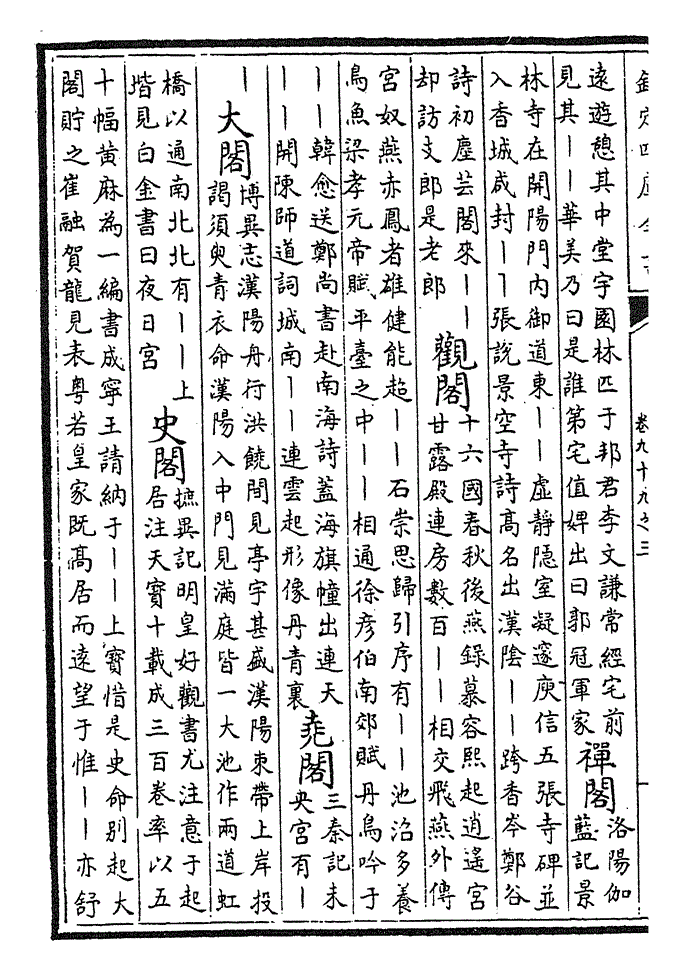 欽定四庫全書
卷九十九之三
遠遊憩其中堂宇園林匹于邦君李文謙常經宅前
見其——華美乃曰是誰第宅值婢出曰郭冠軍家
禪閣
洛陽伽
藍記景
林寺在開陽門內御道東——虛靜隱室凝邃庾信五張寺碑並
入香城咸封——張說景空寺詩髙名出漢陰——跨香岑鄭谷
詩初塵芸閣來——
却訪支郎是老郎
觀閣
十六國春秋後燕錄慕容熙起逍遙宮
甘露殿連房數百——相交飛燕外傳
宮奴燕赤鳳者雄健能超——石崇思歸引序有——池沼多養
鳥魚梁孝元帝賦平臺之中——相通徐彥伯南郊賦丹鳥吟于
——韓愈送鄭尚書赴南海詩蓋海旗幢出連天
——開陳師道詞城南——連雲起形像丹青裏
堯閣
三秦記未
央宮有—
—
大閣
博異志漢陽舟行洪饒間見亭宇甚盛漢陽束帶上岸投
謁須臾青衣命漢陽入中門見滿庭皆一大池作兩道虹
橋以通南北北有——上
堦見白金書曰夜日宮
史閣
摭異記明皇好觀書尤注意于起
居注天寳十載成三百卷率以五
十幅黄麻為一編書成寧王請納于——上寳惜是史命別起大
閣貯之崔融賀龍見表粵若皇家既髙居而遠望于惟——亦舒